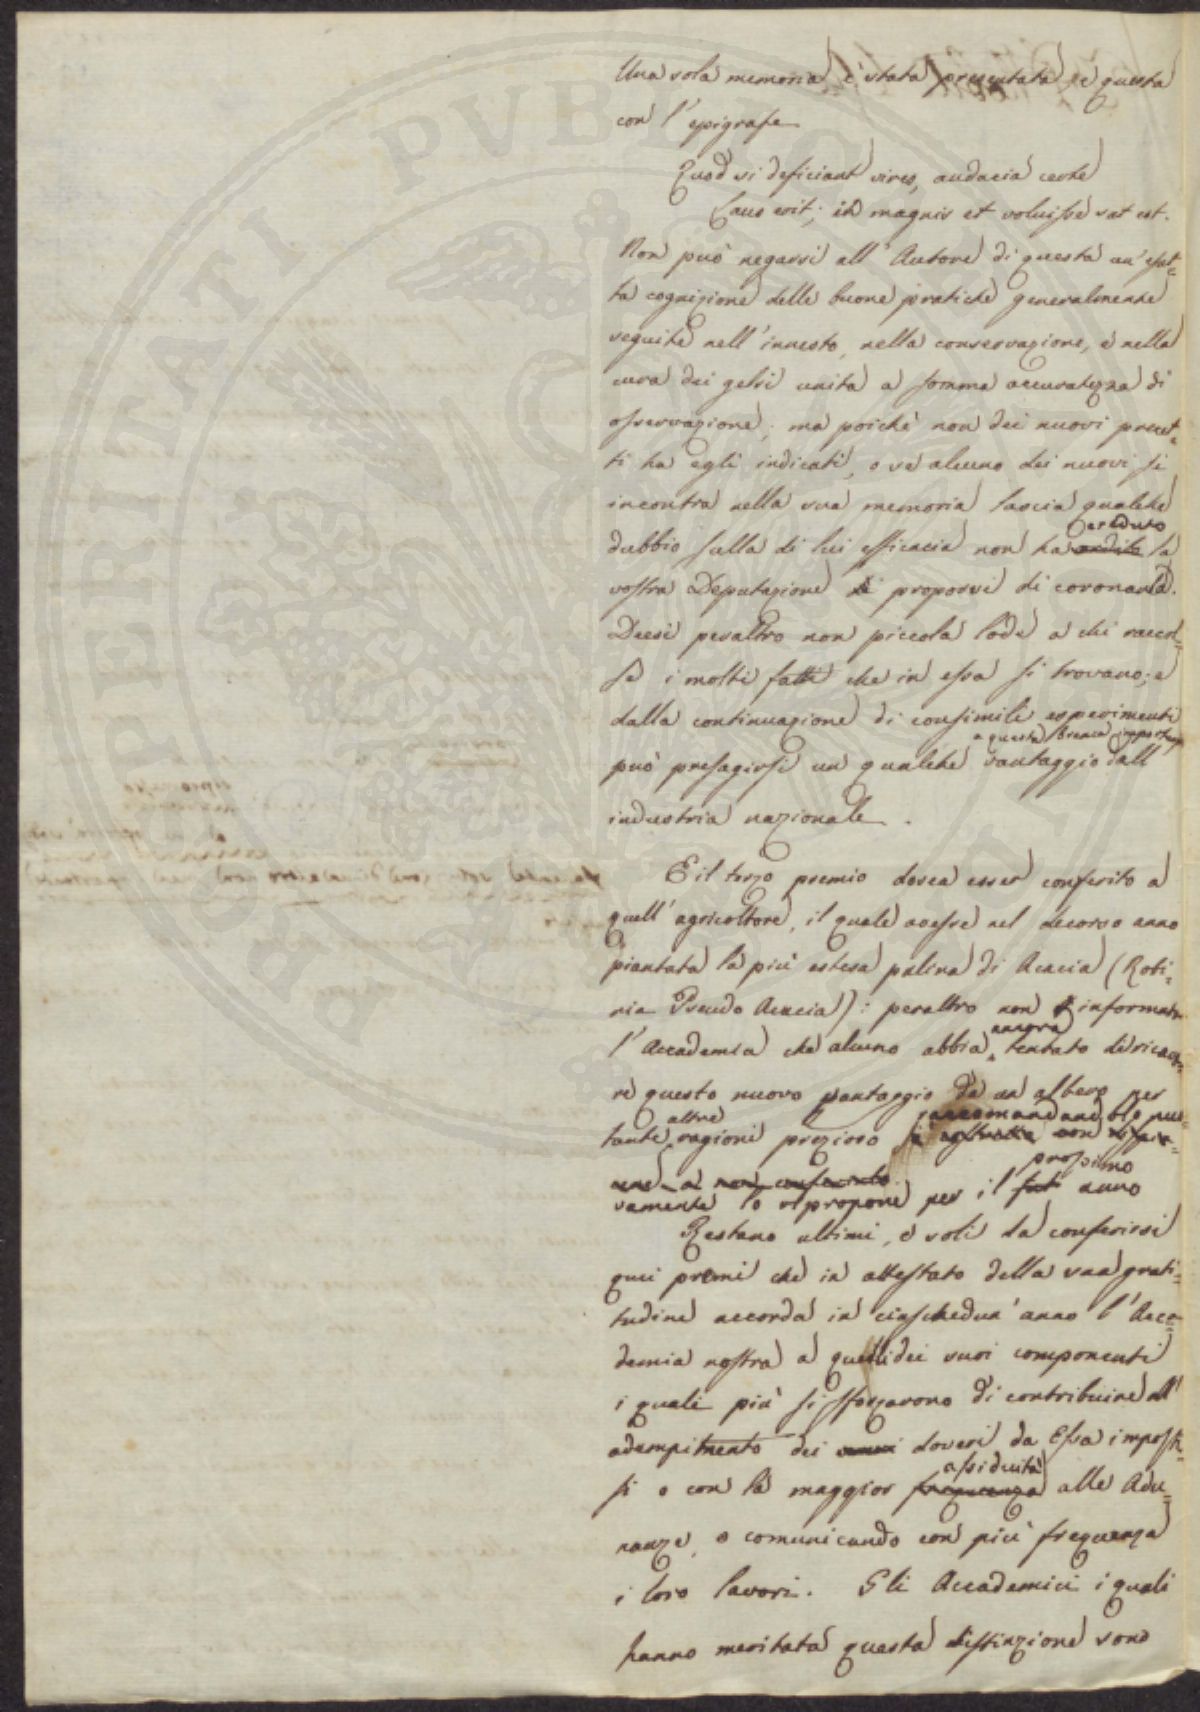 Una sola memoria è stata presentata, e questa
con l'epigrafe
Quod si deficiant vires, audacia certe
Laus erit; in magnis et voluisse sat est.
Non può negarsi all'Autore di questa un'esat=
ta cognizione delle buone pratiche generalmente
seguite nell'innesto, nella conservazione, e nella
cura dei gelsi unita a somma accuratezza di
osservazione; ma poichè non dei nuovi precet=
ti ha egli indicati, o se alcuno dei nuovi si
incontra nella sua memoria lascia qualche
dubbio sulla di lui efficacia non ha creduto la
vostra Deputazione di proporvi di coronarla.
Deesi peraltro non piccola lode a chi raccol=
se i molti fatti che in essa si trovano; e
dalla continuazione di consimili esperimenti
a questa branca
può presagirsi un qualche vantaggio dall'
industria nazionale.
E il terzo premio dovea esser conferito a
quell'agricoltore, il quale avesse nel decorso anno
piantata la più estesa palina di Acacia (Robi=
nia Pseudo Acacia): peraltro non informata
l'Accademia che alcuno abbia ancora tentato di ricava=
re questo nuovo vantaggio da un albero per
tante altre ragioni prezioso raccomandandolo nuo=
vamente lo ripropone per il prossimo anno
Restano ultimi, e soli da conferirsi
quei premi che in attestato della sua grati=
tudine accorda in ciaschedun'anno l'Acca=
demia nostra a quelli dei suoi componenti
i quali più si sforzarono di contribuire all'
adempimento dei doveri da Essa imposti=
si o con la maggior assiduità alle Adu=
nanze, o comunicando con più frequenza
i loro lavori. Gli Accademici i quali
hanno meritata questa distinzione sono
PERITATI PVBLIC